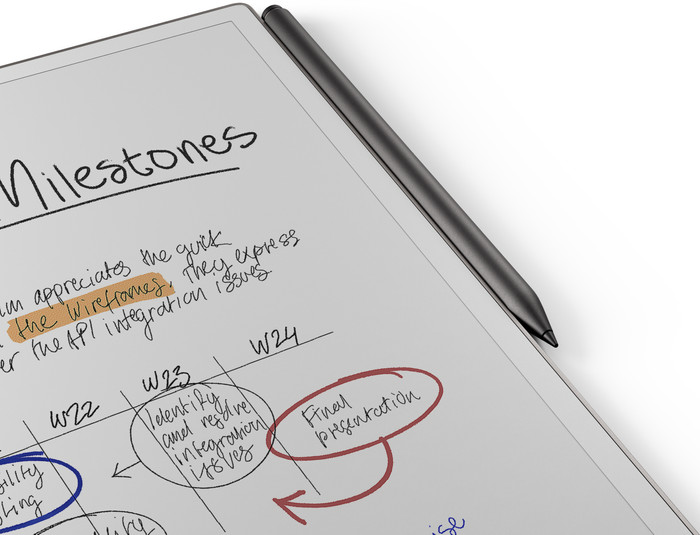 Milestones
appreciates the quick
the wireframes. They express
the API integration issues
W22
W23
W24
Identify
and resolve
integration
issues
Final
presentation